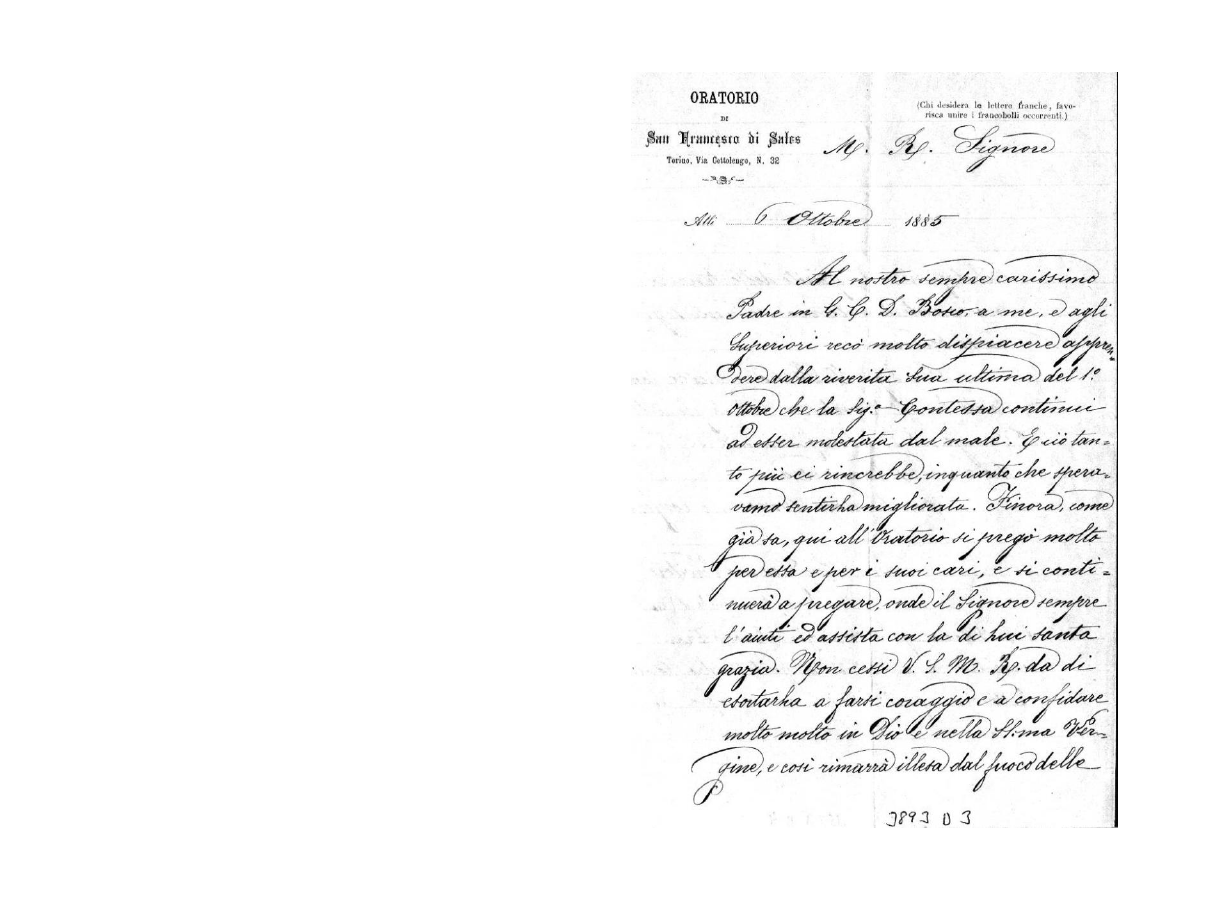 ORATORIO
DI
San Francesco di Sales
Torino, Via Cottolengo, N. 32
(Chi desidera le lettere franche, favo-
risca unire i francobolli occorrenti.)
M. R. Signore
Alli 6 Ottobre 1885
Al nostro sempre carissimo
Padre in G. C. D. Bosco, a me, e agli
Superiori recò molto dispiacere appren-
dere dalla riverita Sua ultima del 1.º
Ottobre che la Sig.ª Contessa continui
ad esser molestata dal male. E ciò tan=
to più ci rincrebbe, inquanto che spera=
vamo sentirla migliorata. Finora, come
già sa, qui all'Oratorio si pregò molto
per essa e per i suoi cari, e si conti=
nuerà a pregare, onde il Signore sempre
l'aiuti ed assista con la di Lui santa
grazia. Non cessi V. S. M. R. da di
esortarla a farsi coraggio e a confidare
molto molto in Dio e nella SS:ma Ver=
gine, e così rimarrà illesa dal fuoco delle
3893 D 3